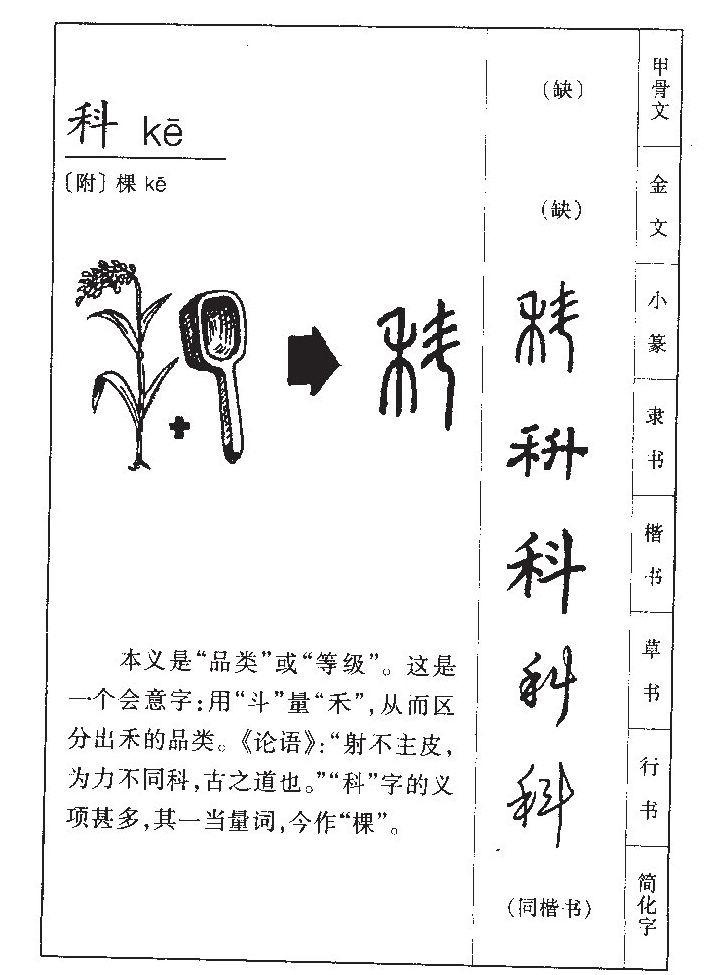 科 kē
〔附〕棵 kē
本义是“品类”或“等级”。这是
一个会意字：用“斗”量“禾”，从而区
分出禾的品类。《论语》：“射不主皮，
为力不同科，古之道也。”“科”字的义
项甚多，其一当量词，今作“棵”。
科
（缺）
甲骨文
（缺）
金文
科
小篆
科
隶书
科
楷书
科
草书
科
行书
（同楷书）
简化字